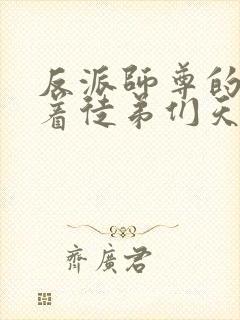 反派師尊的
着徒弟们天
齊廣君